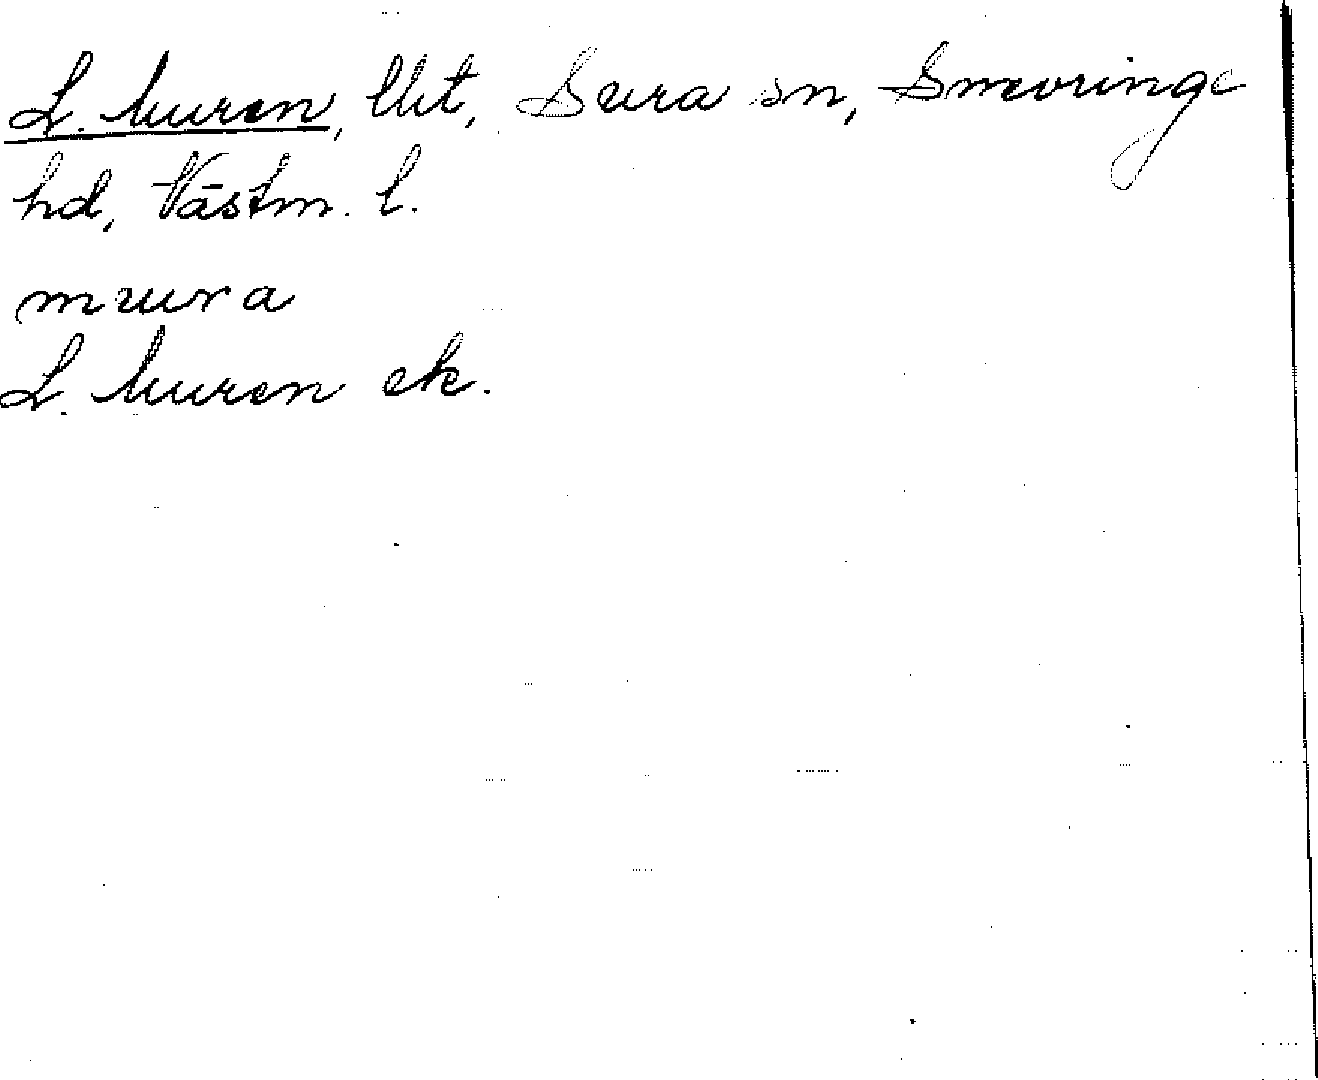 L. Muren, lht, Sura sn, Snevringe
hd, Västm. l.
mura
L. Muren ek.